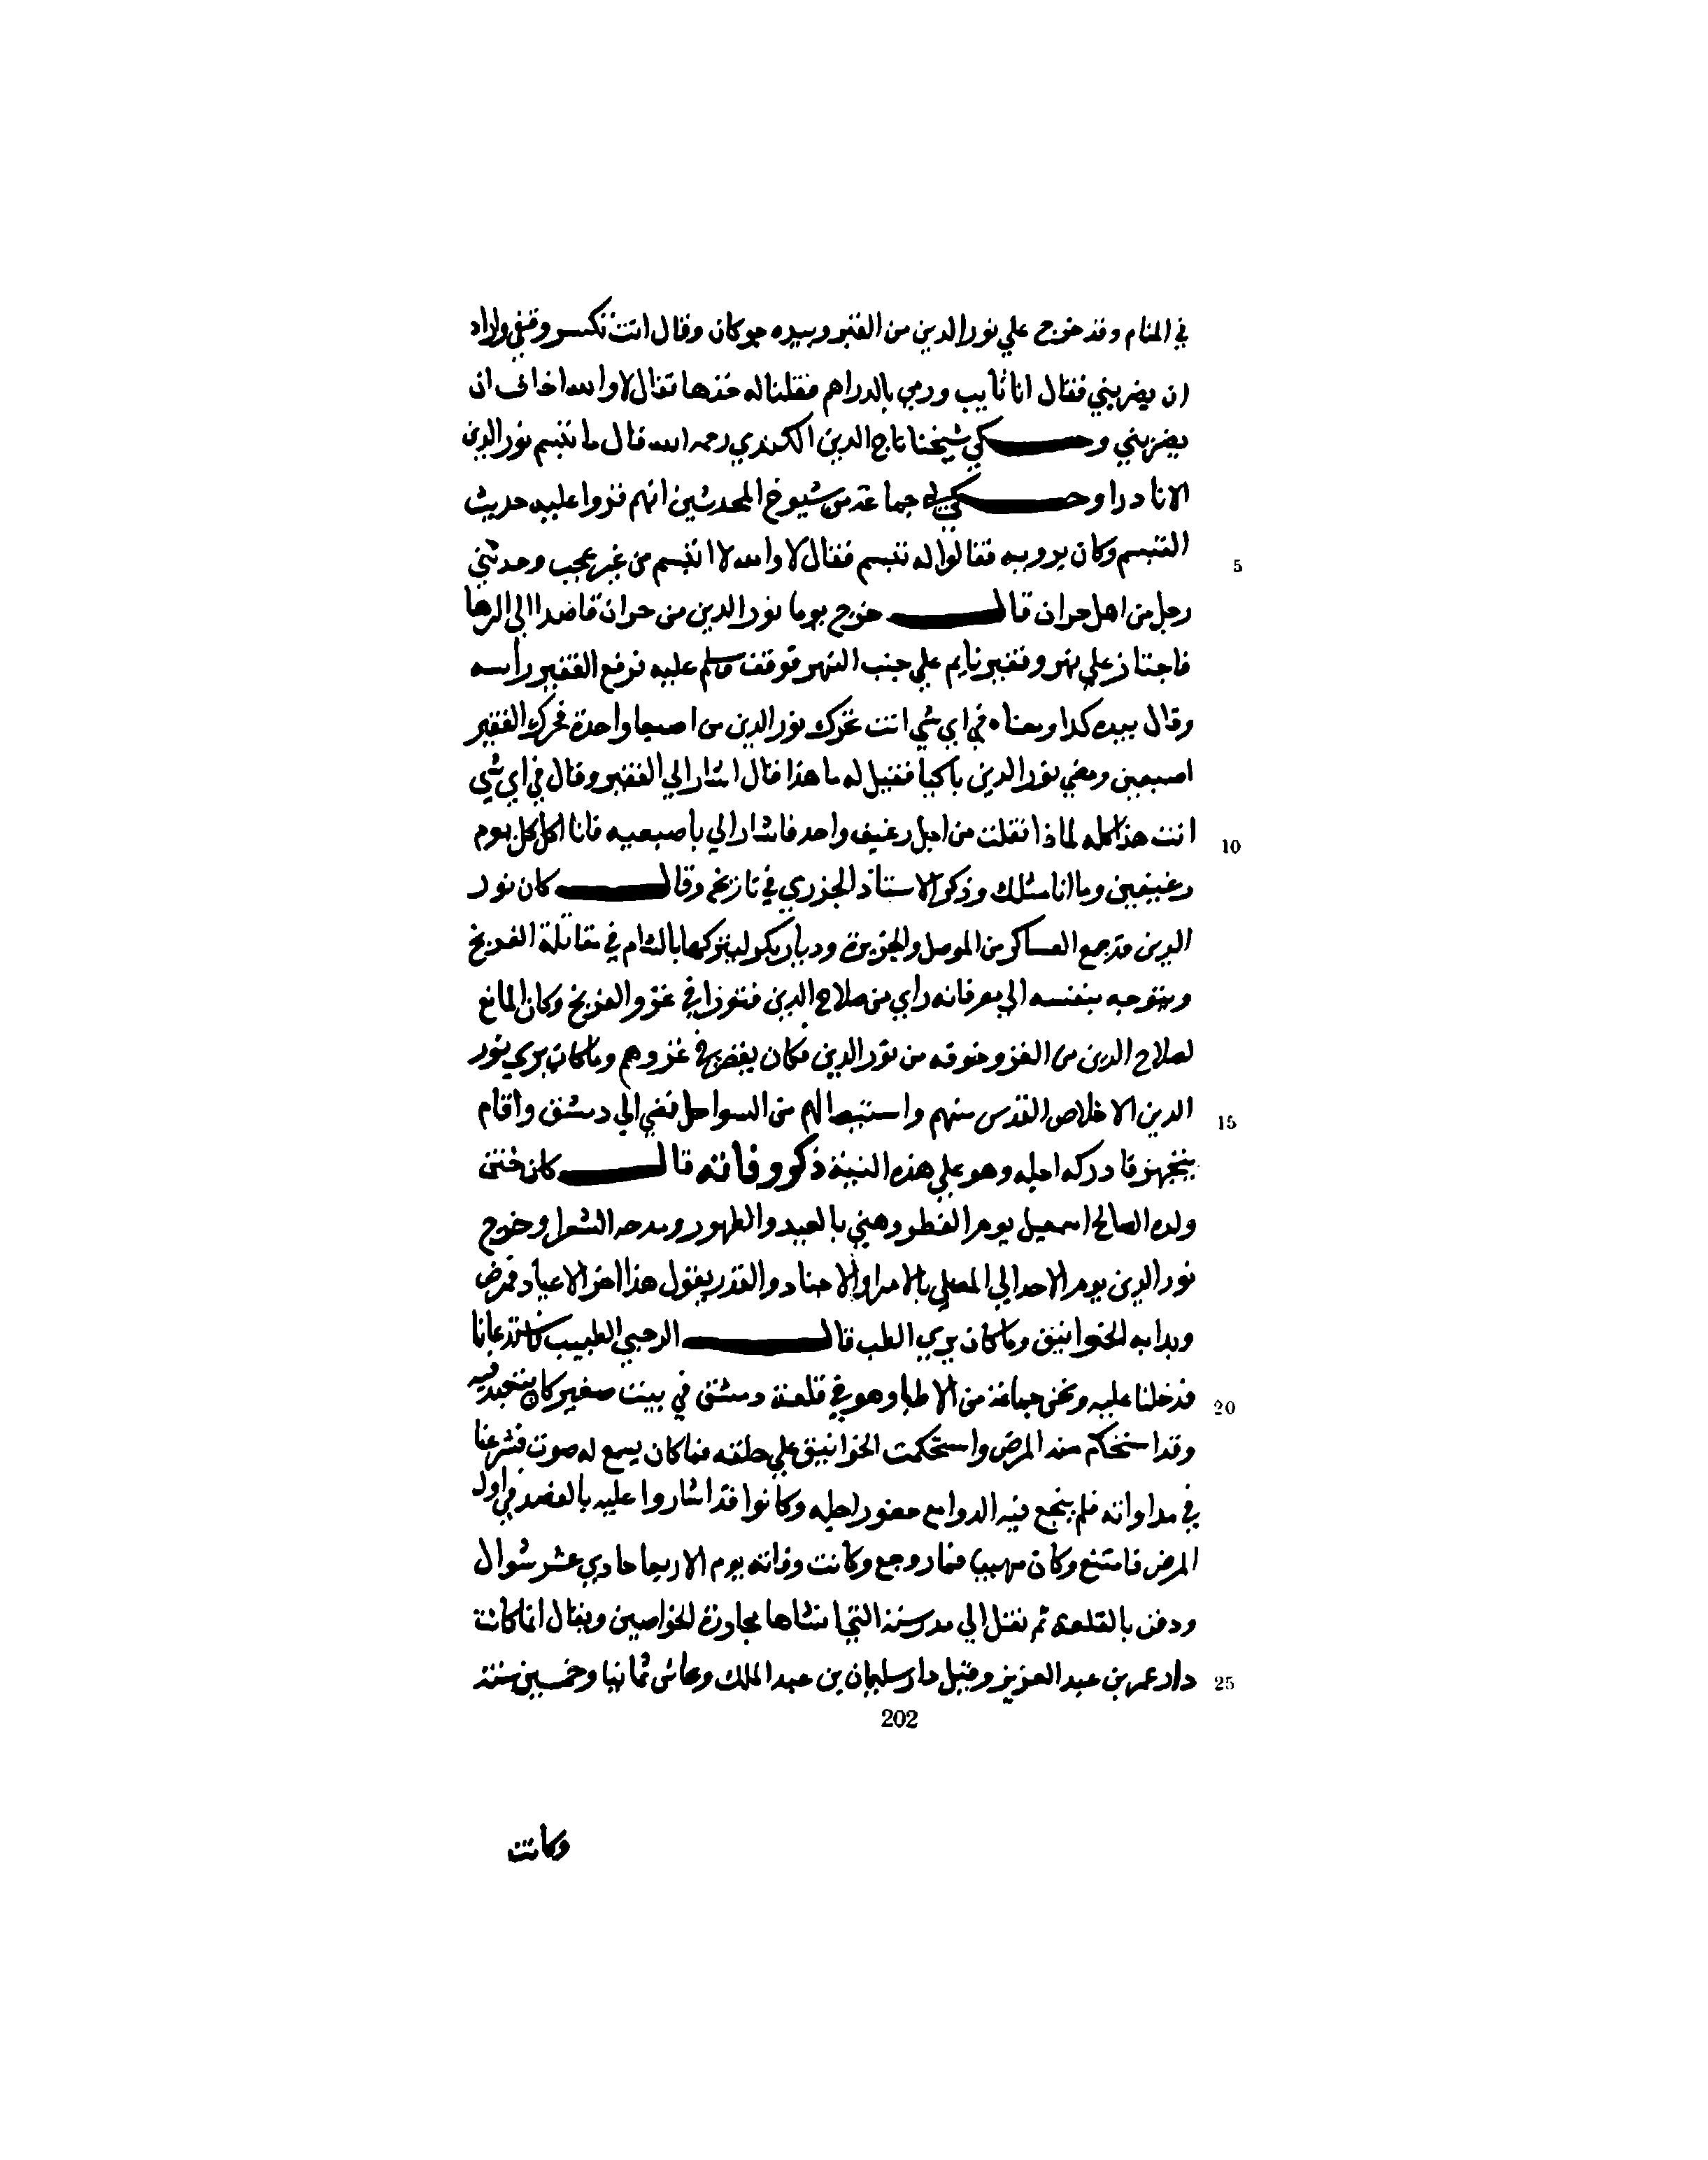 في المنام وقد خرج علي نور الدين من القبر وبيده جوكان وقال انت تكسر وقفي واراد
ان يضربني فقال انا تايب ورمي بالدراهم فقلنا له خذها فقال لا والله اخاف ان
يضربني وحكي شيخنا تاج الدين الكندي رحمه الله قال ما تبسم نور الدين
الا نادرا وحكي لي جماعة من شيوخ المحدثين انهم قروا عليه حديث
التبسم وكان يرويه فقالوا له تبسم فقال لا والله لا اتبسم من غير عجب وحدثني
رجل من اهل حران قال خرج يوما نور الدين من حران قاصدا الي الرها
فاجتاز علي نهر وفقير نايم علي جنب النهر فوقف وسلم عليه فرفع الفقير راسه
وقال بيده كذا ومعناه في اي شي انت فحرك نور الدين من اصبعا واحدة فحرك الفقير
اصبعين ومضي نور الدين باكيا فقيل له ما هذا قال اشار الي الفقير وقال في اي شي
انت هذا كله لماذا فقلت من اجل رغيف واحد فاشار الي باصبعيه فانا اكل كل يوم
رغيفين وما انا مثلك وذكر الاستاذ الجزري في تاريخه وقال كان نور
الدين قد جمع العساكر من الموصل والجزيرة وديار بكر ليتركها بالشام في مقابلة الفرنج
ويتوجه بنفسه الي مصر فانه راي من صلاح الدين فتورا في غزو الفرنج وكان المانع
لصلاح الدين من الغزو خوفه من نور الدين فكان يقصر في غزوهم وما كان يري نور
الدين الا خلاص القدس منهم واستيصالهم من السواحل فمضي الي دمشق واقام
يتجهز فادركه اجله وهو علي هذه النية ذكر وفاته قال كان ختن
ولده الصالح اسمعيل يوم الفطر وهني بالعيد والطهور ومدحه الشعرا وخرج
نور الدين يوم الاحد الي المصلي بالامرا والاجناد والقدر يقول هذا اخر الاعياد فمرض
وبدا به الخوانيق وما كان يري الطب قال الرحبي الطبيب فاستدعانا
فدخلنا عليه ونحن جماعة من الاطبا وهو في قلعة دمشق في بيت صغير كان يتعبد فيه
وقد استحكم منه المرض واستحكمت الخوانيق علي حلقه فما كان يسمع له صوت فشرعنا
في مداواته فلم ينجع فيه الدوا مع حضور اجله وكانوا قد اشاروا عليه بالفصد في اول
المرض فامتنع وكان مهيبا فما روجع وكانت وفاته يوم الاربعا حادي عشر شوال
ودفن بالقلعة ثم نقل الي مدرسته التي انشاها مجاورة الخواصين ويقال انها كانت
دار عمر بن عبد العزيز وقيل دار سليمان بن عبد الملك وعاش ثمانيا وخمسين سنة
5
10
15
20
25
202
وكانت